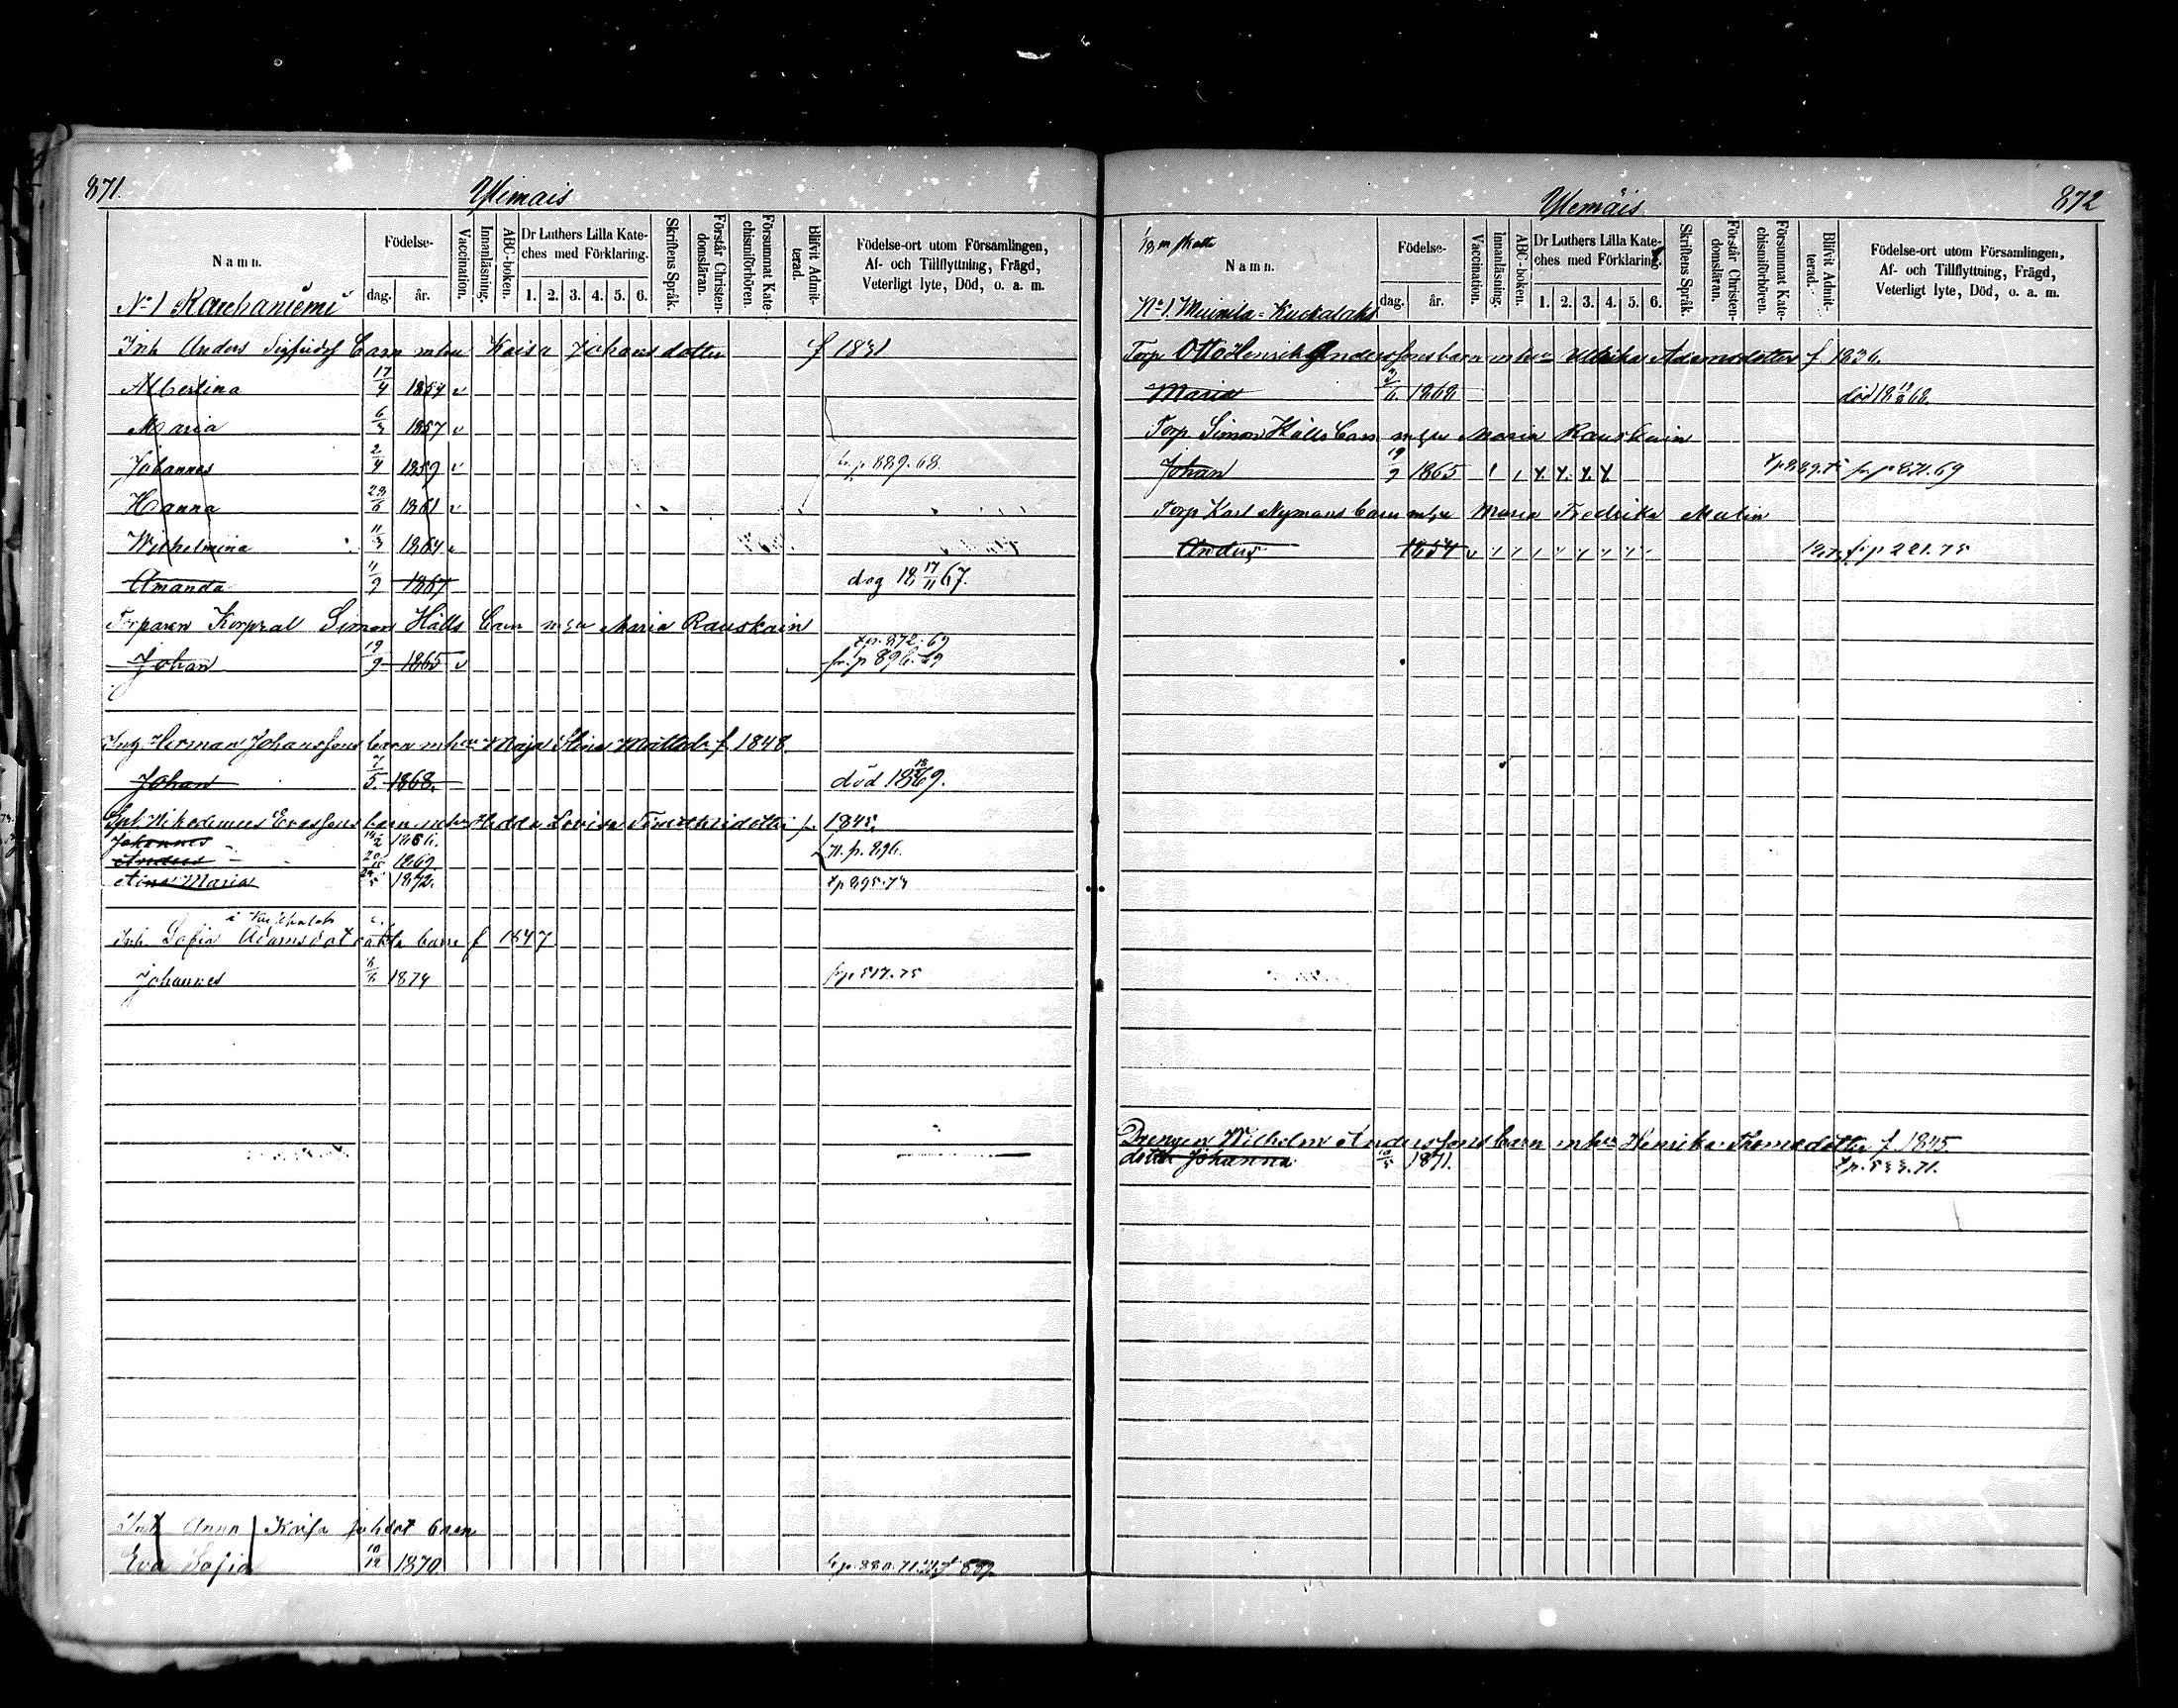 871.
Ylimais
Namn.
Födelse-
dag.
år.
Vaccination.
Innanläsning.
ABC-boken.
Dr Luthers Lilla Kate-
ches med Förklaring.
1. 2. 3. 4. 5. 6.
Skriftens Språk.
Förstår Christen-
domsläran.
Försummat Kate-
chismiförhören.
Blifvit Admit-
terad.
Födelse-ort utom Församlingen,
Af- och Tillflyttning, Frägd,
Veterligt lyte, Död, o. a. m.
No 1 Karhaniemi
Inh Anders Sigfridsf barn mhu Kaisa Johansdotter f 1831
Albertina 17/4 1854 v
Maria 6/3 1857 v
Johannes 2/4 1859 v 889.68
Hanna 23/6 1861 v
Wilhelmina 11/3 1864 v
Amanda 11/9 1867 dog 18 17/11 67.
Torparen Korpral Simon Hälls barn mhu Maria Rauskain
tp. 872.69
Johan 19/9 1865 v fr. p 896.69
Inh Herman Johanssons barn mhu Maja Stina Mattsdr f. 1848.
Johan 7/5 1868. död 1869.
Inh Nikodemus barn mhu Hedda Lovisa f. 1845.
Johannes 2 1866.
Anders 1869 p. 896.
Aina Maria 24/5 1872. tp 895.73
i
Inh Sofia Adamsdot barn f 1847
Johannes 6/6 1874 fr p 517.75
Inh Anna Kaisa Johdot barn
Eva Sofia 10/12 1870. 880.71
872
Ylemäis
Namn.
Födelse-
dag.
år.
Vaccination.
innanläsning.
ABC-boken.
Dr Luthers Lilla Kate-
ches med Förklaring.
1. 2. 3. 4. 5. 6.
Skriftens Språk.
Förstår Christen-
domsläran.
Försummat Kate-
chismiförhören.
Blifvit Admit-
terad.
Födelse-ort utom Församlingen,
Af- och Tillflyttning, Frägd,
Veterligt lyte, Död, o. a. m.
No 1. Kuckalaks
Torp Otto Henrik Anderssons barn mhu Ulrika Adamsdotter f 1836.
Maria 1868 död 68.
Torp Simon Hälls barn mhu Maria Rauskain
Johan 19/9 1865 fr p 871.69
Torp Karl Nymans barn mhu Maria Fredrika Malin
Anders 1854 v fr p 221.75
Drengen Wilhelm Anderssons barn mhu Henrika Thomædotter f 1845.
dotter Johanna 10/5 1871. tp. 533.71.